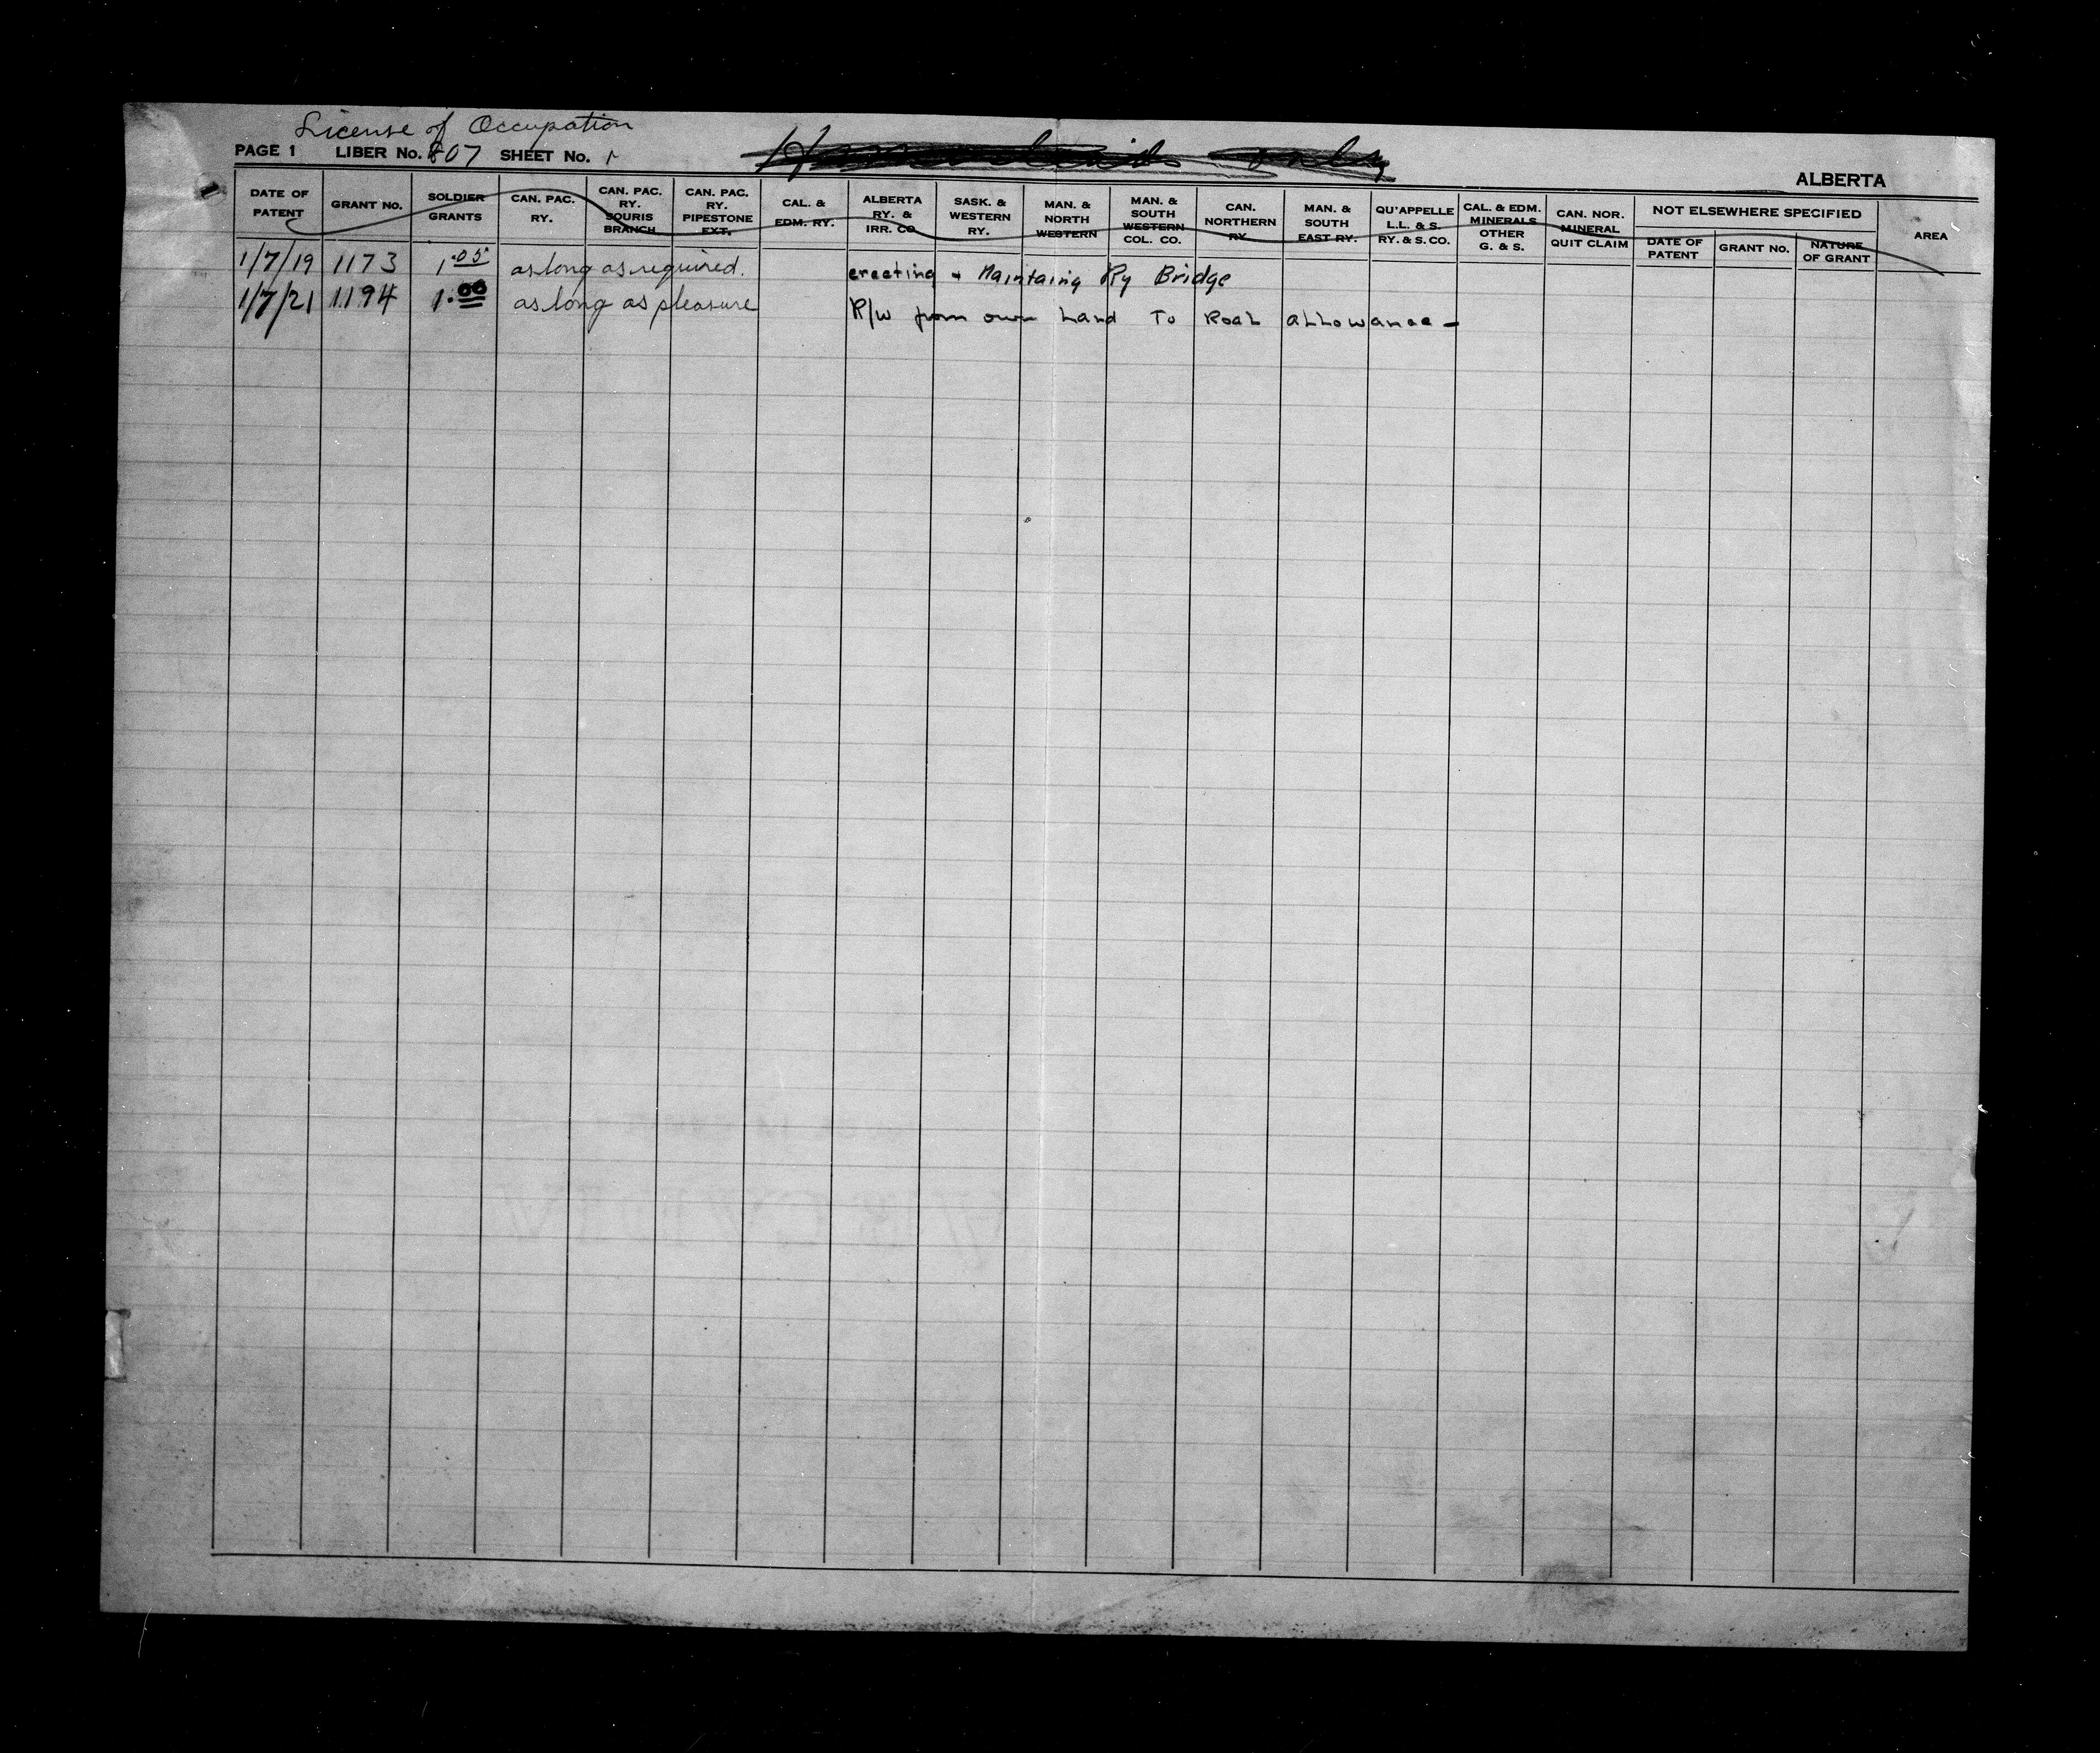 License of Occupation
PAGE 1 LIBER No. 807 SHEET No. 1 Homesteads only ALBERTA
DATE OF PATENT
GRANT NO.
SOLDIER GRANTS
CAN. PAC. RY.
CAN. PAC. RY. SOURIS BRANCH
CAN. PAC. RY. PIPESTONE EXT.
CAL. & EDM. RY.
ALBERTA RY. & IRR. CO
SASK. & WESTERN RY.
MAN. & NORTH WESTERN
MAN. & SOUTH WESTERN COL. CO.
CAN. NORTHERN RY
MAN. & SOUTH EAST RY.
QU'APPELLE L.L. & S. RY. & S. CO.
CAL. & EDM. MINERALS OTHER G. & S.
CAN. NOR. MINERAL QUIT CLAIM
NOT ELSEWHERE SPECIFIED
DATE OF PATENT
GRANT NO.
NATURE OF GRANT
AREA
1/7/19 1173 1.05 as long as required. erecting + Maintaing Ry Bridge
1/7/21 1194 1.00 as long as pleasure R/w from own Land To Road allowance -